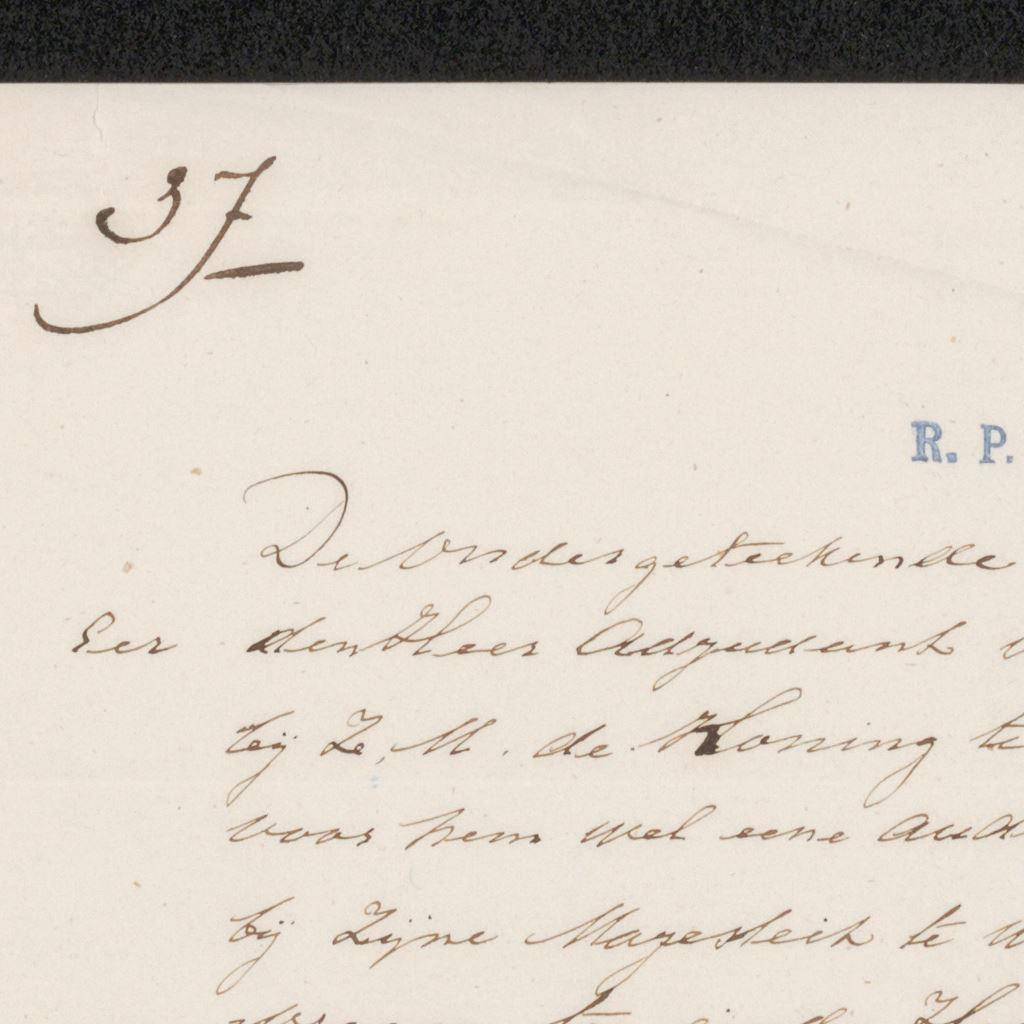 37
R. P.
De Ondergeteekende
Eer den Heer Adjudant
bij Z. M. de Koning te
voor hem wel eene aud
bij Zijne Majesteit te